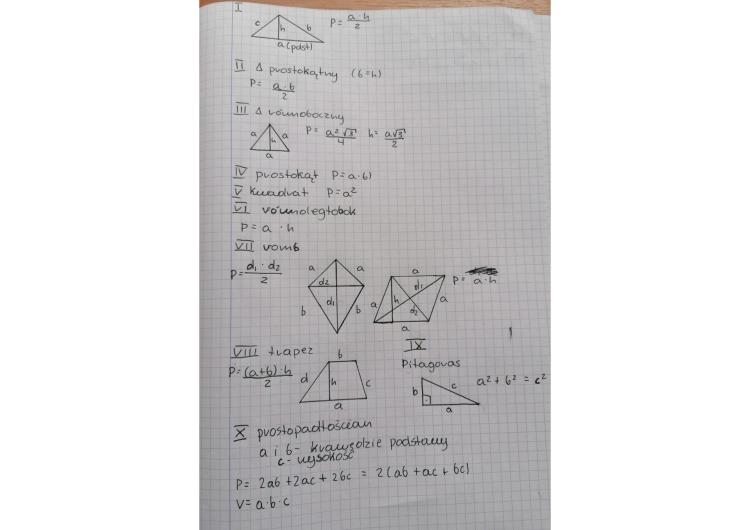 I
c h b
a (pdst)
P = a·h / 2
II Δ prostokątny (b=h)
P = a·b / 2
III Δ równoboczny
a h a
a
P = a²√3 / 4 h = a√3 / 2
IV prostokąt P = a·b)
V kwadrat P = a²
VI równoległobok
P = a · h
VII romb
P = d₁ · d₂ / 2
a a
d₂
d₁
b b
a
d₁
a h a
d₂
a
P = a·h
VIII trapez
P = (a+b)·h / 2
b
d h c
a
IX
Pitagoras
b c
a
a² + b² = c²
X prostopadłościan
a i b - krawędzie podstawy
c - wysokość
P = 2ab + 2ac + 2bc = 2(ab + ac + bc)
V = a·b·c